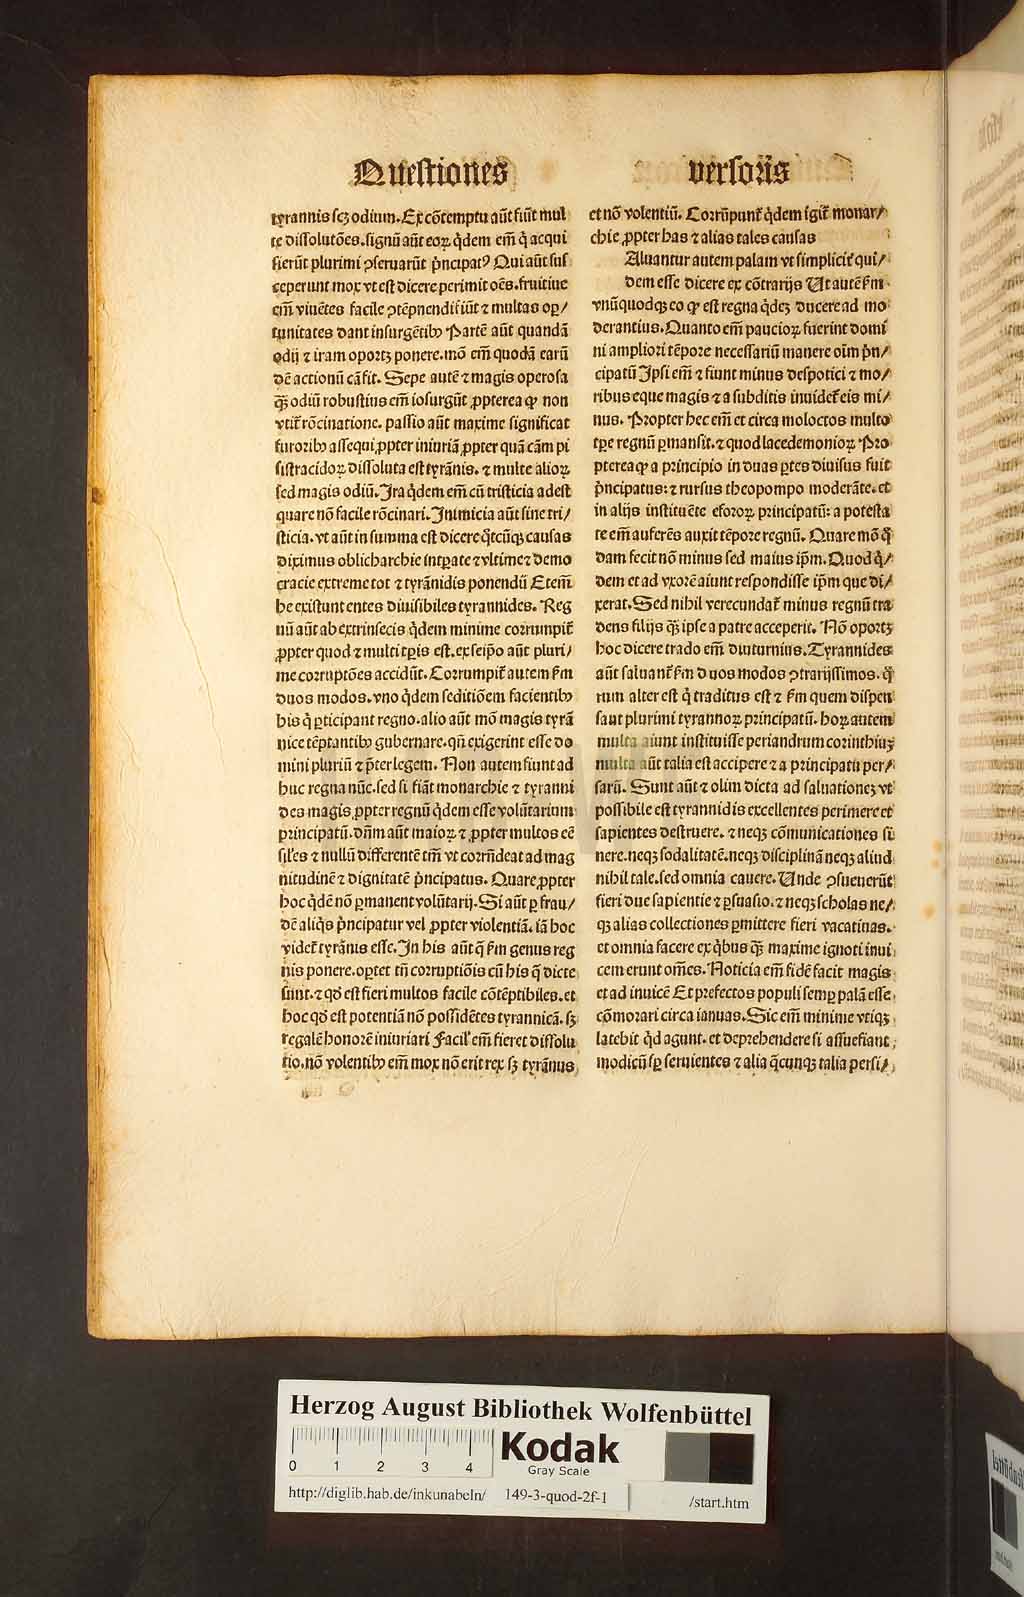 Questiones versorijs
tyrannis scꝫ odium. Ex cōtemptu aūt fiūt mul
te dissolutōes. signū aūt eoꝝ q̇dem em̄ q̇ acqui
sierūt plurimi ꝯseruarūt p̄ncipatꝰ Qui aūt sus
ceperunt mox vt est dicere perimit oēs. fruitiue
em̄ viuētes facile ꝯtēpnendi fiūt ⁊ multas op/
tunitates dant insurgētibꝫ Partē aūt quandā
odij ⁊ iram oportꝫ ponere. mō em̄ quodā earū
dē actionū cā fit. Sepe autē ⁊ magis operosa
qꝫ odiū robustius em̄ iosurgūt ꝓpterea ꝙ non
vtit̄ rōcinatione. passio aūt maxime significat
furoribꝫ assequi ꝓpter iniuriā ꝓpter quā cām pi
sistracidoꝝ dissoluta est tyrānis. ⁊ multe alioꝝ
sed magis odiū. Ira q̇dem em̄ cū tristicia adest
quare nō facile rōcinari. Inimicia aūt sine tri/
sticia. vt aūt in summa est dicere q̄tcūqꝫ causas
diximus oblicharchie intꝑate ⁊ vltime ⁊ demo
cracie extreme tot ⁊ tyrānidis ponendū Etem̄
he existunt entes diuisibiles tyrannides. Reg
nū aūt ab extrinsecis q̇dem minime corrumpit̄
ꝓpter quod ⁊ multi tꝑis est. ex seip̄o aūt pluri/
me corruptōes accidūt. Corrumpit̄ autem ẜm
duos modos. vno q̇dem seditiōem facientibꝫ
his q̇ ꝑticipant regno. alio aūt mō magis tyrā
nice tēptantibꝫ gubernare. qn̄ exigerint esse do
mini pluriū ⁊ p̄ter legem. Non autem fiunt ad
huc regna nūc. sed si fiāt monarchie ⁊ tyranni
des magis ꝓpter regnū q̇dem esse volūtarium
principatū. dn̄m aūt maioꝝ ⁊ ꝓpter multos eē
siles ⁊ nullū differentē tm̄ vt corrn̄deat ad mag
nitudinē ⁊ dignitatē p̄ncipatus. Quare ꝓpter
hoc q̇dē nō ꝑmanent volūtarij. Si aūt ꝑ frau/
dē aliq̇s p̄ncipatur vel ꝓpter violentiā. iā hoc
videt̄ tyrānus esse. In his aūt q̄ ẜm genus reg
nis ponere. oꝑtet tn̄ corruptiōis cū his q̄ dicte
sunt. ⁊ qd̄ est fieri multos facile cōtēptibiles. et
hoc qd̄ est potentiā nō possidētes tyrannicā. sꝫ
regalē honorē iniuriari Facilˀ em̄ fieret dissolu
tio. nō volentibꝫ em̄ mox nō erit rex sꝫ tyrānus
et nō volentiū. Corrūpunt̄ q̇dem igit̄ monar/
chie ꝓpter has ⁊ alias tales causas
Aluantur autem palam vt simplicit̄ qui/
dem esse dicere ex cōtrarijs Ut autē ẜm
vnūquodqꝫ eo ꝙ est regna q̇deꝫ ducere ad mo
derantius. Quanto em̄ paucioꝝ fuerint domi
ni ampliori tēpore necessariū manere oīm p̄n/
cipatū Ipsi em̄ ⁊ fiunt minus despotici ⁊ mo/
ribus eque magis ⁊ a subditis inuidet̄ eis mi/
nus. Propter hec em̄ et circa moloctos multo
tꝑe regnū ꝑmansit. ⁊ quod lacedemonioꝝ Pro
pterea ꝙ a principio in duas ꝑtes diuisus fuit
p̄ncipatus: ⁊ rursus theopompo moderāte. et
in alijs instituēte eforoꝝ principatū: a potesta
te em̄ auferēs auxit tēpore regnū. Quare mō q̄
dam fecit nō minus sed maius ip̄m. Quod q̇/
dem et ad vxorē aiunt respondisse ip̄m que di/
xerat. Sed nihil verecundat̄ minus regnū tra
dens filijs qꝫ ipse a patre acceperit. Nō oportꝫ
hoc dicere trado em̄ diuturnius. Tyrannides
aūt saluant̄ ẜm duos modos ꝯtrarijssimos. q̄
rum alter est q̇ traditus est ⁊ ẜm quem dispen
sant plurimi tyrannoꝝ principatū. hoꝝ autem
multa aiunt instituisse periandrum corinthiuꝫ
multa aūt talia est accipere ⁊ a principatu per/
sarū. Sunt aūt ⁊ olim dicta ad saluationeꝫ vt
possibile est tyrannidis excellentes perimere et
sapientes destruere. ⁊ neqꝫ cōmunicationes si
nere. neqꝫ sodalitatē. neqꝫ disciplinā neqꝫ aliud
nihil tale. sed omnia cauere. Unde ꝯsueuerūt
fieri due sapientie ⁊ ꝑsuasio. ⁊ neqꝫ scholas ne/
qꝫ alias collectiones ꝑmittere fieri vacatiuas.
et omnia facere ex q̇bus qꝫ maxime ignoti inui
cem erunt om̄es. Noticia em̄ fidē facit magis
et ad inuicē Et prefectos populi semꝑ palā esse
cōmorari circa ianuas. Sic em̄ minime vtiqꝫ
latebit q̇d agunt. et deprehendere si assuefiant
modicū sꝑ seruientes ⁊ alia q̄cunqꝫ talia persi/
Herzog August Bibliothek Wolfenbüttel
0 1 2 3 4
Kodak
Gray Scale
http://diglib.hab.de/inkunabeln/ 149-3-quod-2f-1 /start.htm